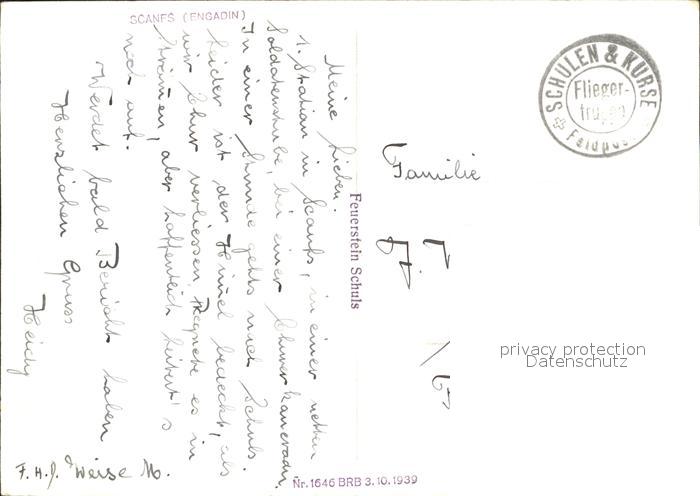 SCANFS (ENGADIN)
Meine Lieben.
1. Station in Scanfs, in einer netten
Soldatenstube, bei einer Churerkameradin.
In einer Stunde gehts nach Schuls.
Leider ist der Himel bedeckt, als
wir Chur verliessen, Regnete es in
Strömen, aber hoffentlich heitert's
noch auf.
Werdet bald Bericht haben
Herzlichen Gruss
F.H.D. Weise M.
Feuerstein Schuls
Nr. 1646 BRB 3.10.1939
SCHULEN & KURSE
Flieger-
truppen
Feldpost
Familie
privacy protection
Datenschutz